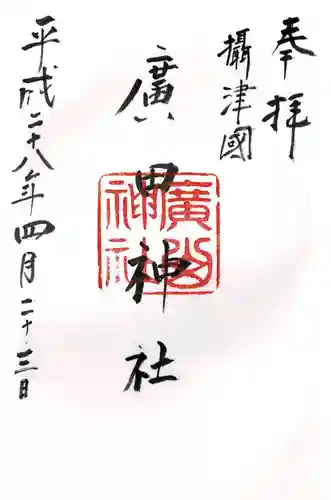 奉拝
攝津國
廣田神社
廣田神社
平成二十八年四月二十三日